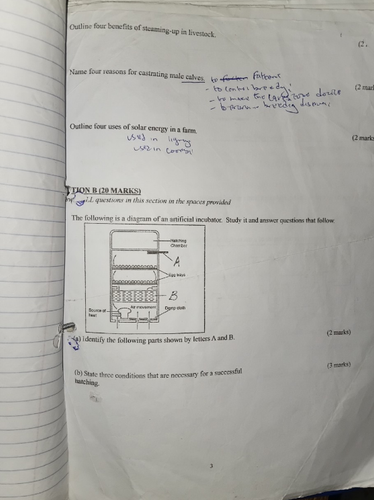 Outline four benefits of steaming-up in livestock.
(2
Name four reasons for castrating male calves. to fatten
- to control breeding
(2 mar
- to
Outline four uses of solar energy in a farm.
used in
(2 marks
used in
TION B (20 MARKS)
ALL questions in this section in the spaces provided
The following is a diagram of an artificial incubator. Study it and answer questions that follow
Hatching
Chamber
A
Egg trays
B
Air movement
Source of
heat
Damp cloth
(a) identify the following parts shown by letters A and B.
(2 marks)
(b) State three conditions that are necessary for a successful
hatching.
(3 marks)
3